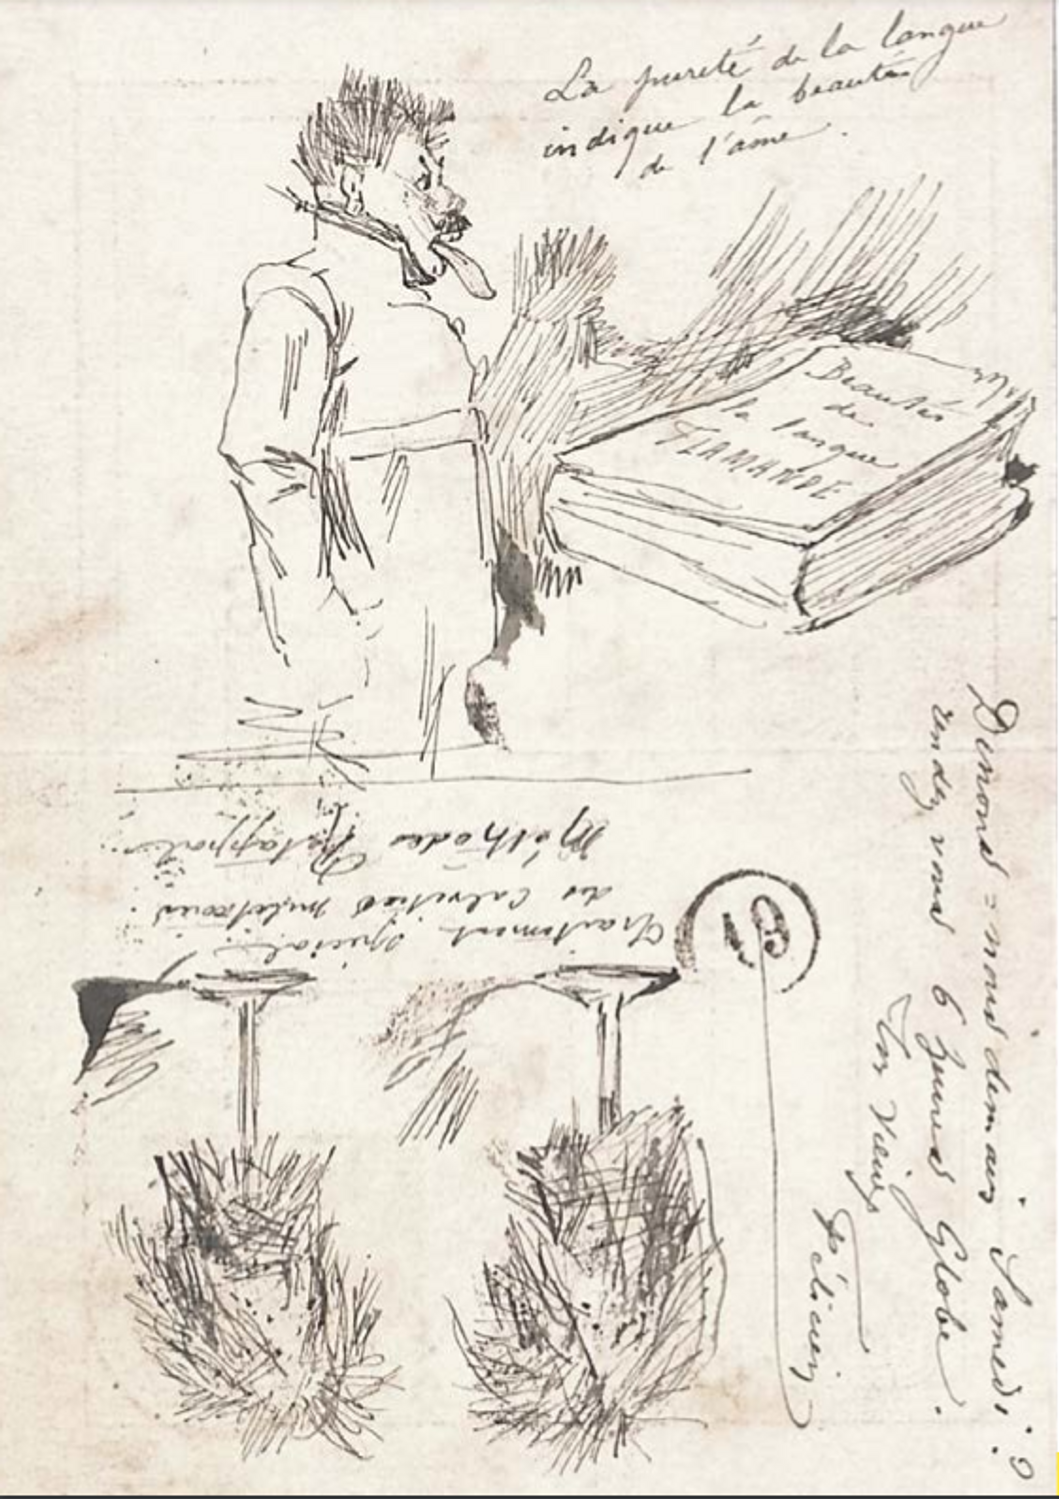 La pureté de la langue
indique la beautés
de l'âme.
Beautés
de
la langue
FLAMANDE
Dinons = nous demain Samedi ?
rendez vous 6 heures Globe.
Ton Vieux
Félicien
Traitement spécial
des Calvities
Méthodes